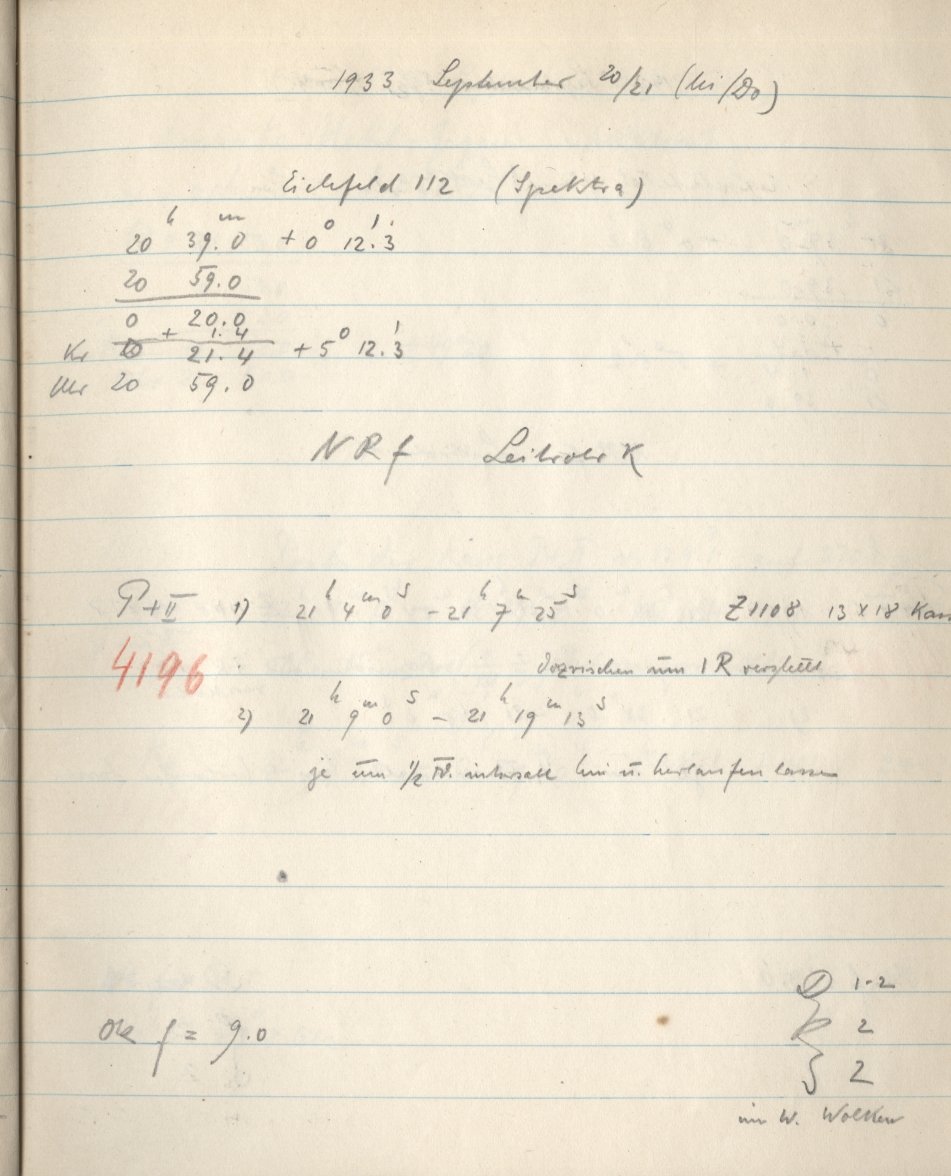 1933 September 20/21 (Mi/Do)
Eichfeld 112 (Spektra)
20 h 39.0 m + 0° 12.'3
20 59.0
0 20.0
+ 1.4
Kr 0 21.4 + 5° 12.'3
Uhr 20 59.0
N R f Leitrohr K
P+II 1) 21h 4m 0s - 21h 7m 25s Z 1108 13 x 18
4196 dazwischen um 1 R verstellt
2) 21h 9m 0s - 21h 19m 13s
je um 1/2 intervall hin u. herlaufen lassen
D 1-2
Ok f = 9.0 2
2
im W. Wolken